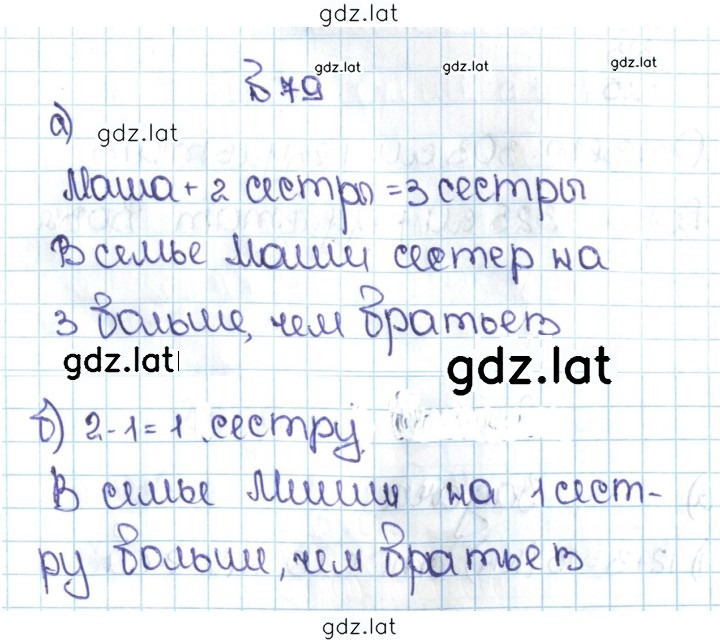 gdz.lat
В 79
gdz.lat gdz.lat gdz.lat
а) gdz.lat
Маша + 2 сестры = 3 сестры
В семье Маши сестер на
3 больше, чем братьев
gdz.lat gdz.lat
б) 2 - 1 = 1 сестру
В семье Миши на 1 сест-
ру больше, чем братьев
gdz.lat